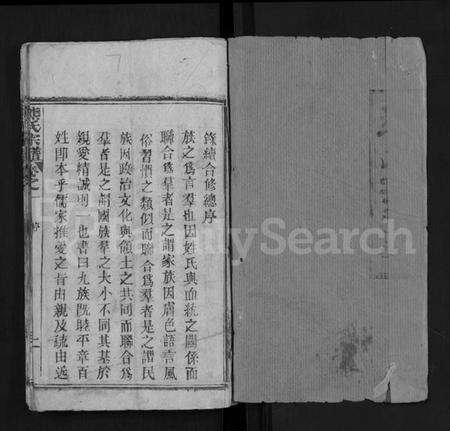 錄續合修總序
族之爲言羣也因姓氏與血統之關係而
聯合爲羣者是之謂家族因膚色語言風
俗習慣之類似而聯合爲羣者是之謂民
族因政治文化與領土之共同而聯合爲
羣者是之謂國族羣之大小不同其基於
親愛精誠則一也書曰九族旣睦平章百
姓卽本乎儒家推愛之旨由親及疏由近
熊氏宗譜
卷之一
序
一
FamilySearch